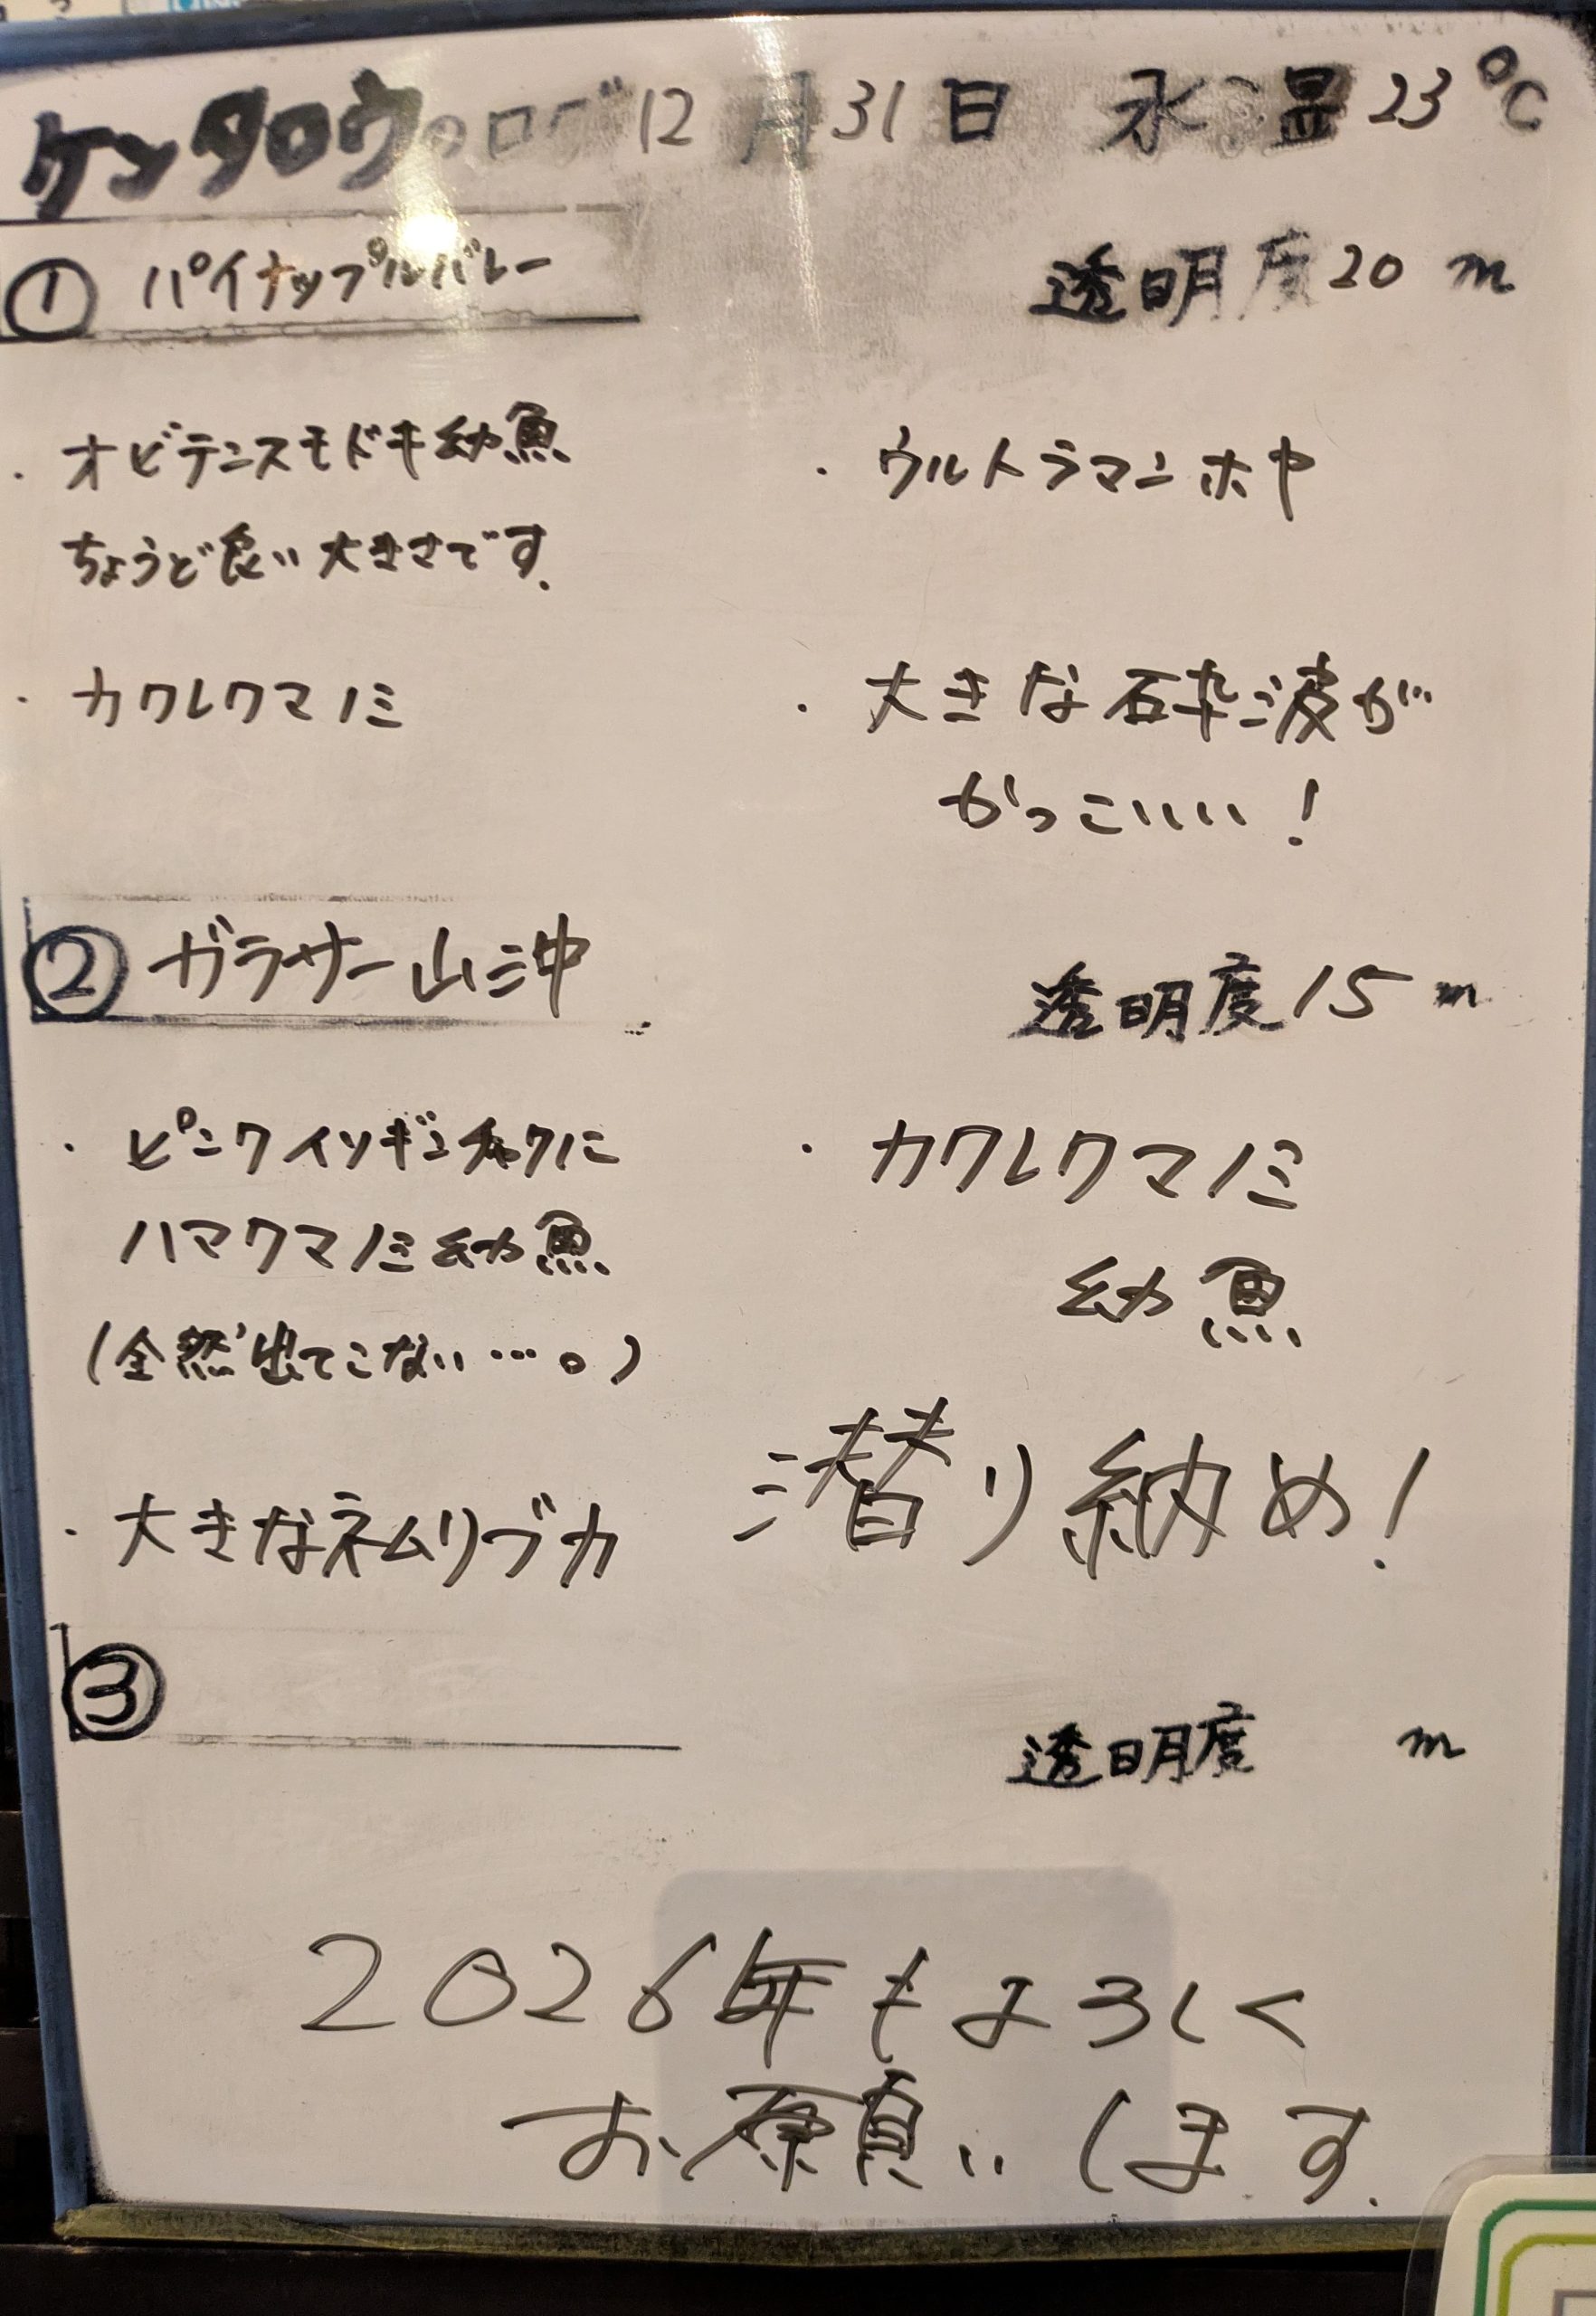 ケンタロウのログ 12月31日 水温23℃
① パイナップルバレー 透明度20m
・オビテンスモドキ幼魚
ちょうど良い大きさです.
・カクレクマノミ
・ウルトラマンホヤ
・大きな砕波が
かっこいいい!
② ガラサー山沖 透明度15m
・ピンクイソギンチャクに
ハマクマノミ幼魚
(全然出てこない…。)
・大きなネムリブカ
・カクレクマノミ
幼魚
潜り納め!
③ 透明度 m
2026年もよろしく
お願いします.